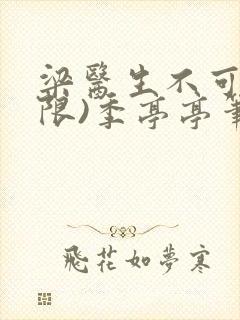 梁醫生不可
限)季亭亭筆
飛花如夢寒